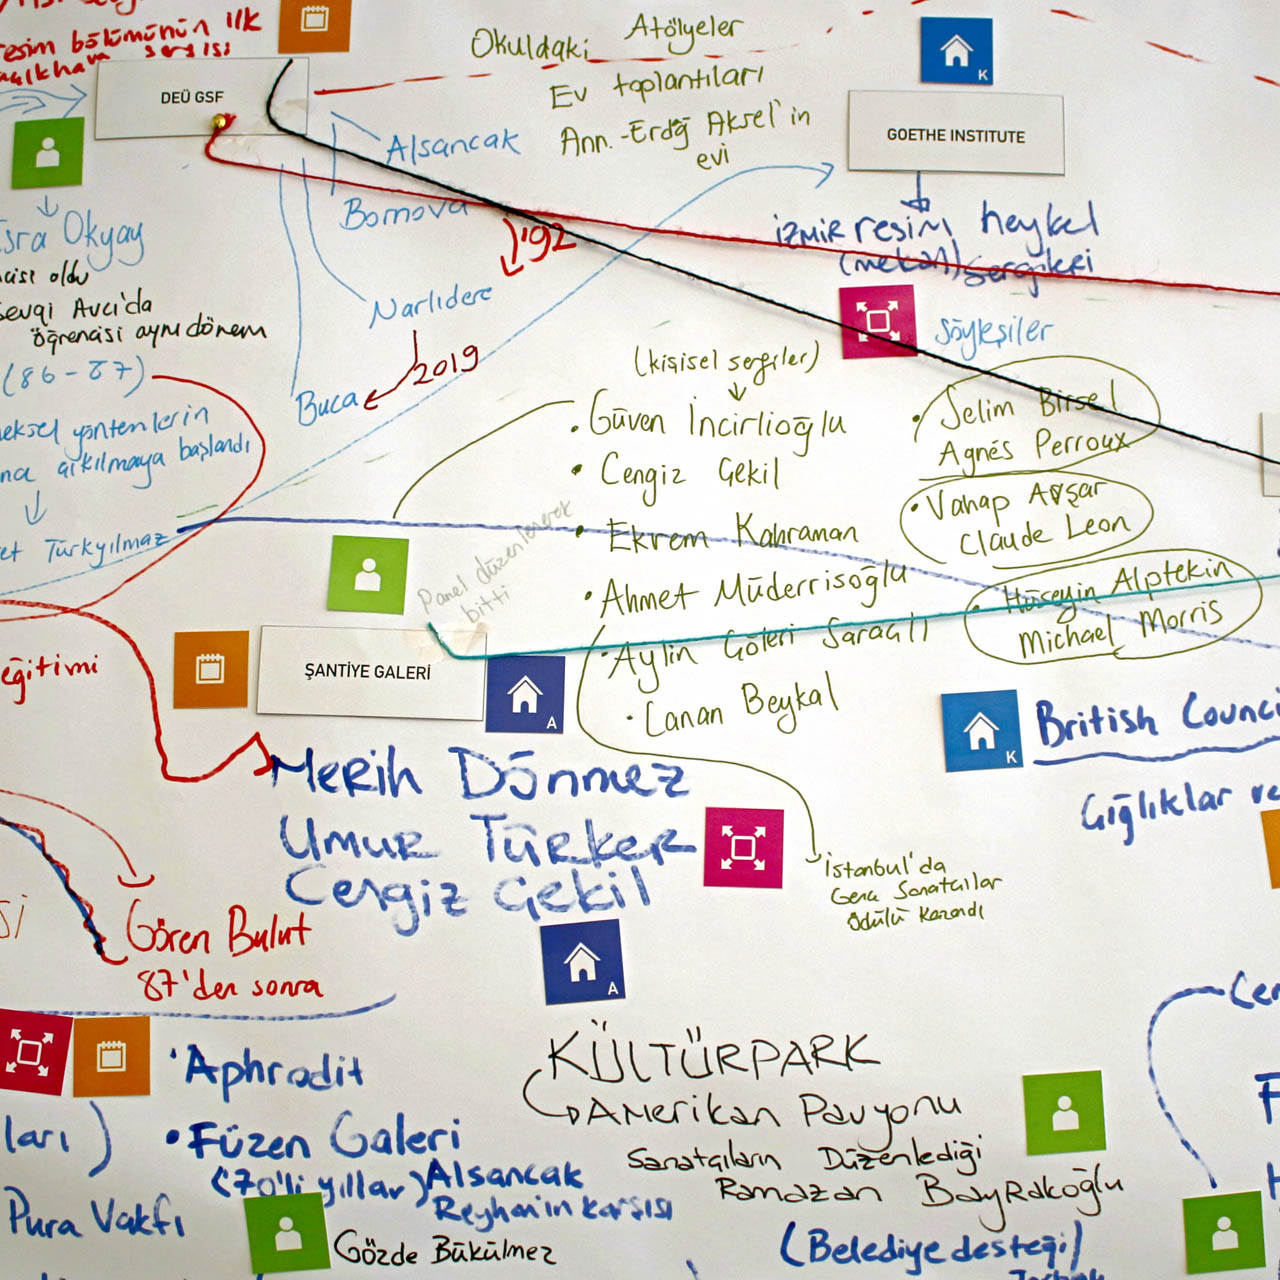 resim bölümünün ilk
sergisi
DEÜ GSF
Okuldaki Atölyeler
Ev toplantıları
Ann.-Erdğ Aksel'in
evi
K
GOETHE INSTITUTE
İzmir resim heykel
(mekan) sergileri
Söyleşiler
Alsancak
Bornova
'92
Narlıdere
2019
Buca
Okyay
oldu
Avcı'da
öğrencisi aynı dönem
(86-87)
yöntemlerin
başlandı
Türkyılmaz
(kişisel sergiler)
• Güven İncirlioğlu
• Cengiz Çekil
• Ekrem Kahraman
• Ahmet Müderrisoğlu
• Aylin Göleri Saraçlı
• Canan Beykal
• Selim Birsel
Agnés Perroux
• Vahap Avşar
Claude Leon
• Hüseyin Alptekin
Michael Morris
Panel düzenlenerek
bitti
ŞANTİYE GALERİ
A
eğitimi
Merih Dönmez
Umur Türker
Cengiz Çekil
K
British
Çığlıklar ve
İstanbul'da
Genç Sanatçılar
Ödülü Kazandı
Gören Bulut
87'den sonra
A
• Aphrodit
• Füzen Galeri
(70'li yıllar) Alsancak
Reyhan'ın karşısı
Pura Vakfı
Gözde Bükülmez
KÜLTÜRPARK
Amerikan Pavyonu
Sanatçıların Düzenlediği
Ramazan Bayrakoğlu
(Belediye desteği)